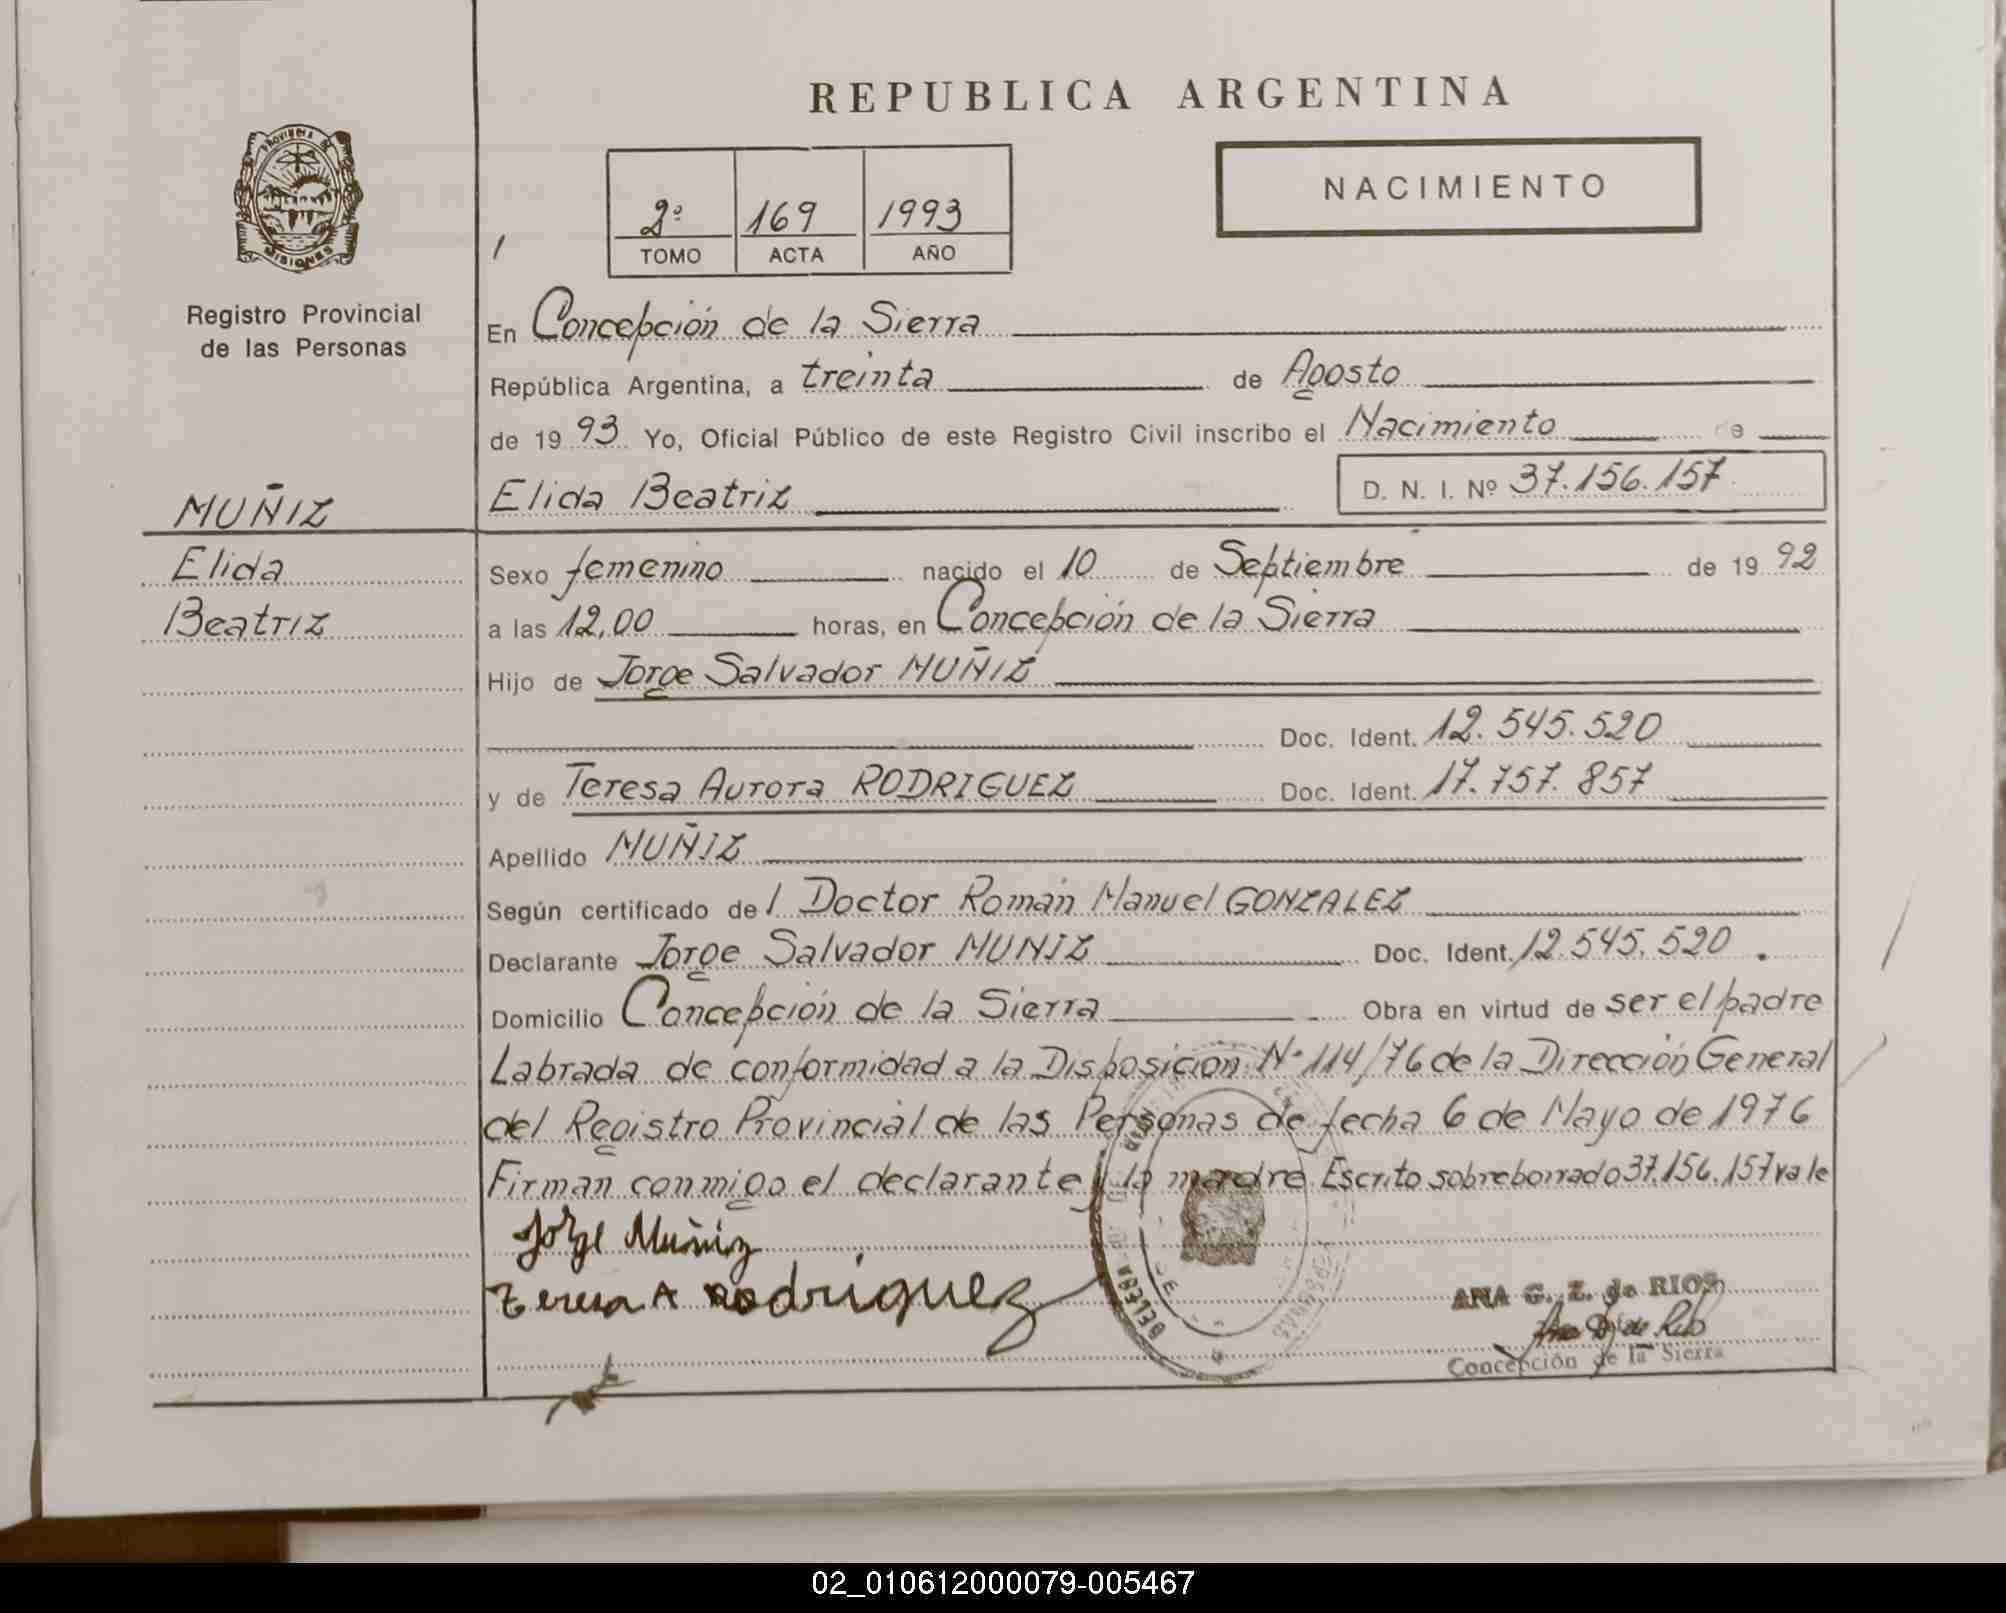 REPUBLICA ARGENTINA
PROVINCIA DE
MISIONES
Registro Provincial
de las Personas
2º 169 1993
TOMO ACTA AÑO
NACIMIENTO
En Concepción de la Sierra
República Argentina, a treinta de Agosto
de 19 93 Yo, Oficial Público de este Registro Civil inscribo el Nacimiento de
Elida Beatriz D. N. I. Nº 37.156.157
MUÑIZ
Elida
Beatriz
Sexo femenino nacido el 10 de Septiembre de 19 92
a las 12,00 horas, en Concepción de la Sierra
Hijo de Jorge Salvador MUÑIZ
Doc. Ident. 12.545.520
y de Teresa Aurora RODRIGUEZ Doc. Ident. 17.757.857
Apellido MUÑIZ
Según certificado de l Doctor Román Manuel GONZALEZ
Declarante Jorge Salvador MUNIZ Doc. Ident. 12.545.520.
Domicilio Concepción de la Sierra Obra en virtud de ser el padre
Labrada de conformidad a la Disposición Nº 114/76 de la Dirección General
del Registro Provincial de las Personas de fecha 6 de Mayo de 1976
Firman conmigo el declarante y la madre. Escrito sobreborrado 37.156.157 vale
Jorge Muñiz
Teresa A Rodriguez
ANA G. Z. de RIOS
Concepción de la Sierra
02_010612000079-005467